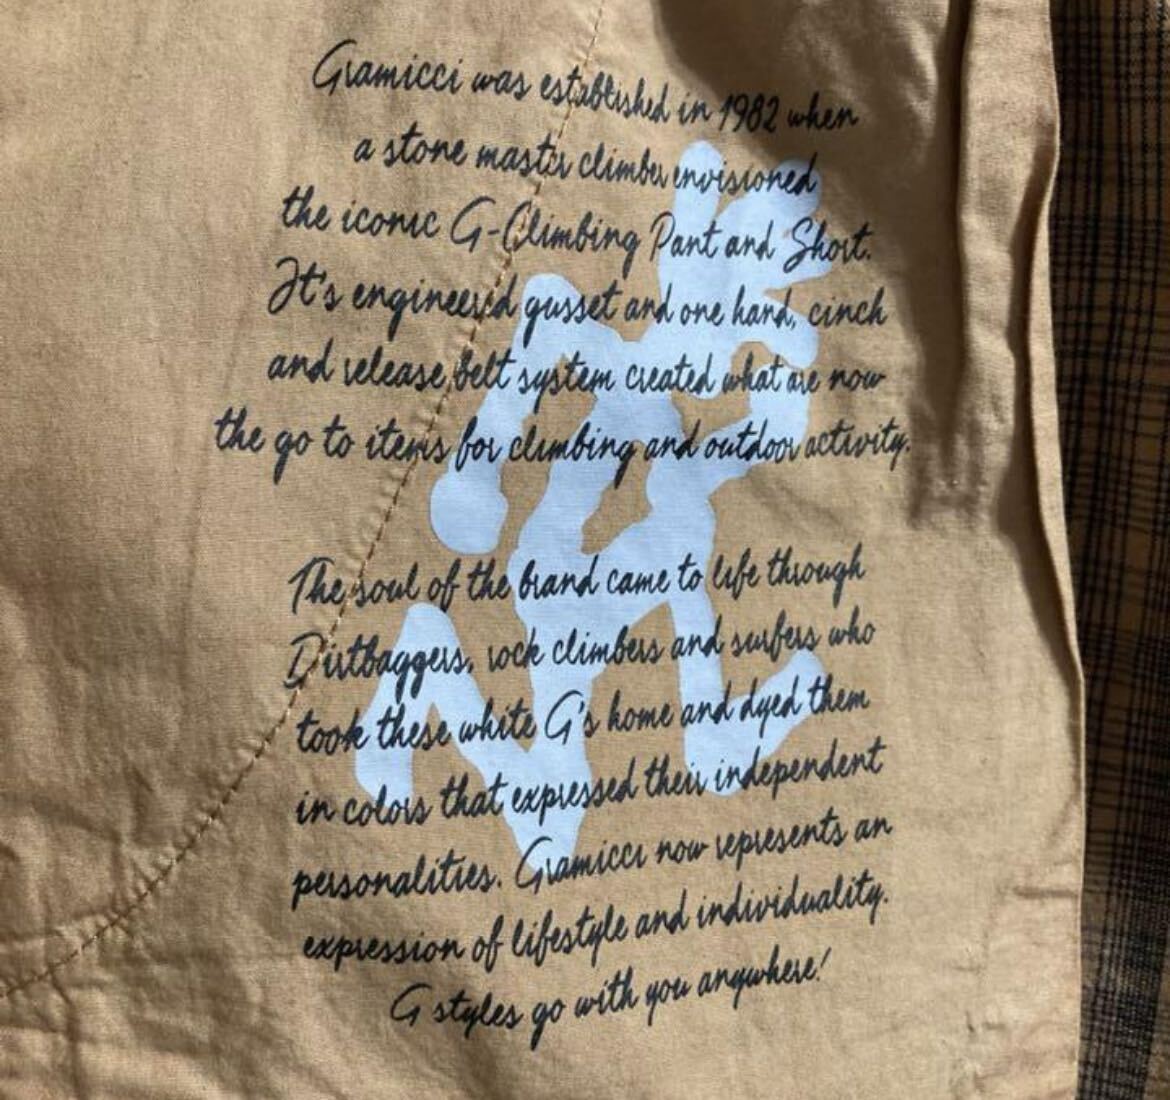 Gramicci was established in 1982 when
a stone master climber envisioned
the iconic G-Climbing Pant and Short.
It's engineered gusset and one hand, cinch
and release belt system created what are now
the go to items for climbing and outdoor activity.
The soul of the brand came to life through
Dirtbaggers, rock climbers and surfers who
took these white G's home and dyed them
in colors that expressed their independent
personalities. Gramicci now represents an
expression of lifestyle and individuality.
G styles go with you anywhere!